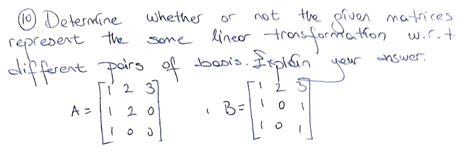 ⑩ Determine whether or not the given matrices
represent the same linear transformation w.r.t
different pairs of basis. Explain your answer.
A = [1 2 3
1 2 0
1 0 0] , B = [1 2 3
1 0 1
1 0 1]